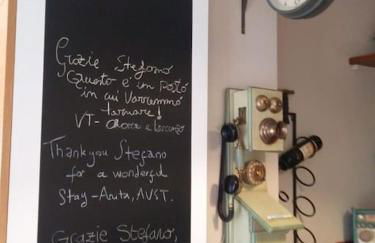 Grazie Stefano
Questo è un posto
in cui vorremmo
tornare!
VT- e Lorenzo
Thank you Stefano
for a wonderful
Stay - Anita, AUST.
Grazie Stefano,